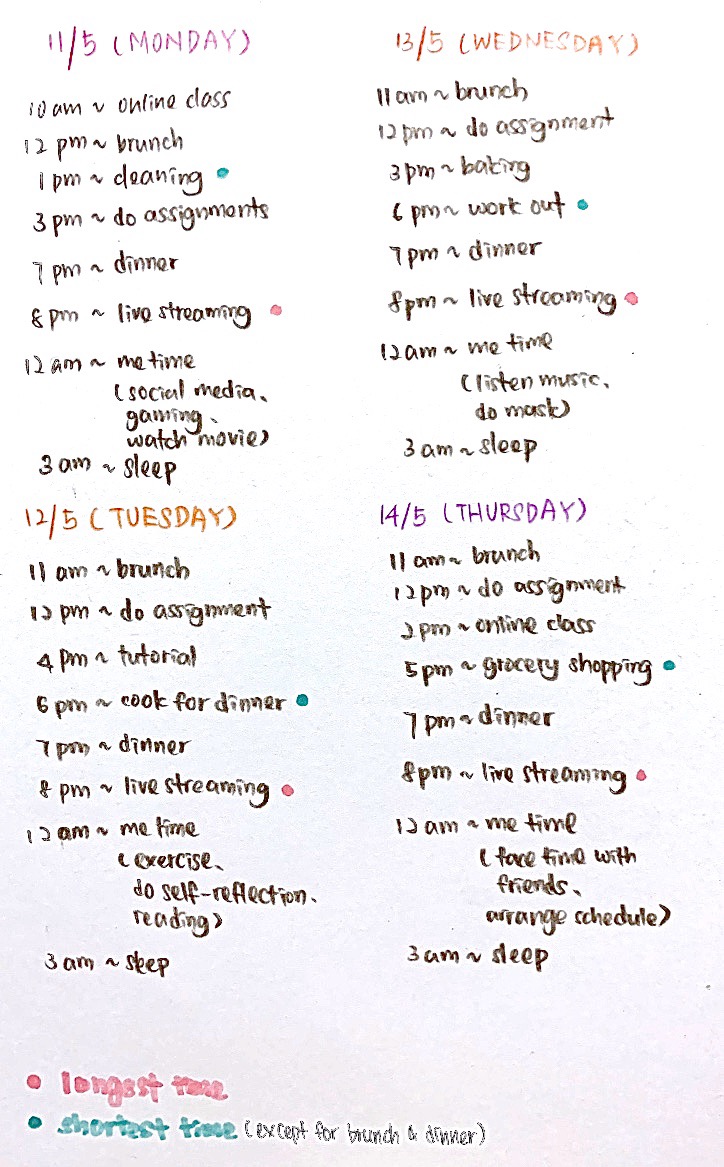 11/5 (MONDAY)
10 am ~ online class
12 pm ~ brunch
1 pm ~ cleaning
3 pm ~ do assignments
7 pm ~ dinner
8 pm ~ live streaming
12 am ~ me time
(social media、
gaming、
watch movie)
3 am ~ sleep
12/5 (TUESDAY)
11 am ~ brunch
12 pm ~ do assignment
4 pm ~ tutorial
6 pm ~ cook for dinner
7 pm ~ dinner
8 pm ~ live streaming
12 am ~ me time
(exercise、
do self-reflection、
reading)
3 am ~ sleep
13/5 (WEDNESDAY)
11 am ~ brunch
12 pm ~ do assignment
3 pm ~ baking
6 pm ~ work out
7 pm ~ dinner
8 pm ~ live streaming
12 am ~ me time
(listen music、
do mask)
3 am ~ sleep
14/5 (THURSDAY)
11 am ~ brunch
12 pm ~ do assignment
2 pm ~ online class
5 pm ~ grocery shopping
7 pm ~ dinner
8 pm ~ live streaming
12 am ~ me time
(face time with
friends、
arrange schedule)
3 am ~ sleep
longest time
shortest time (except for brunch & dinner)